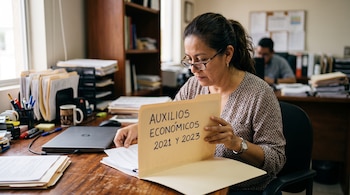 AUXILIOS
ECONÓMICOS
2021 Y 2023